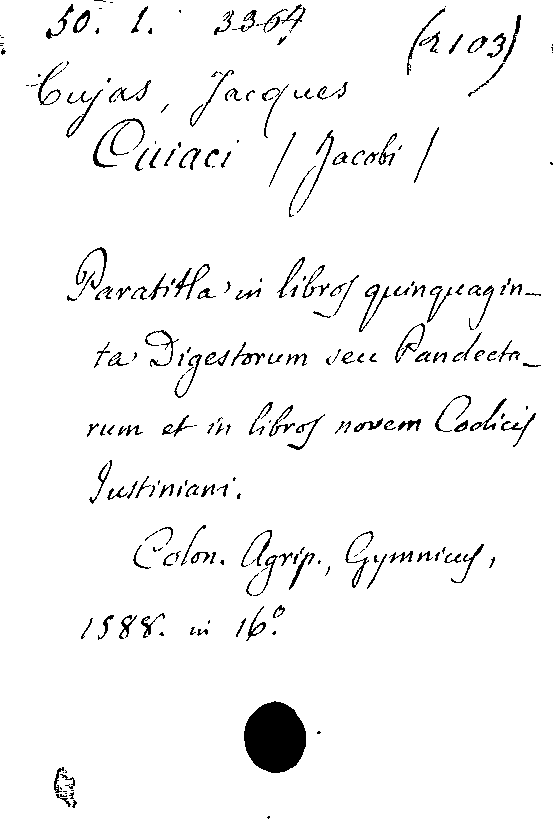 50. 1. 3364 (2103)
Cujas, Jacques
Cuiaci / Jacobi /
Paratitla in libros quinquagin-
ta Digestorum seu Pandecta-
rum et in libros novem Codicis
Iustiniani.
Colon. Agrip., Gymnicus,
1588. in 16º.